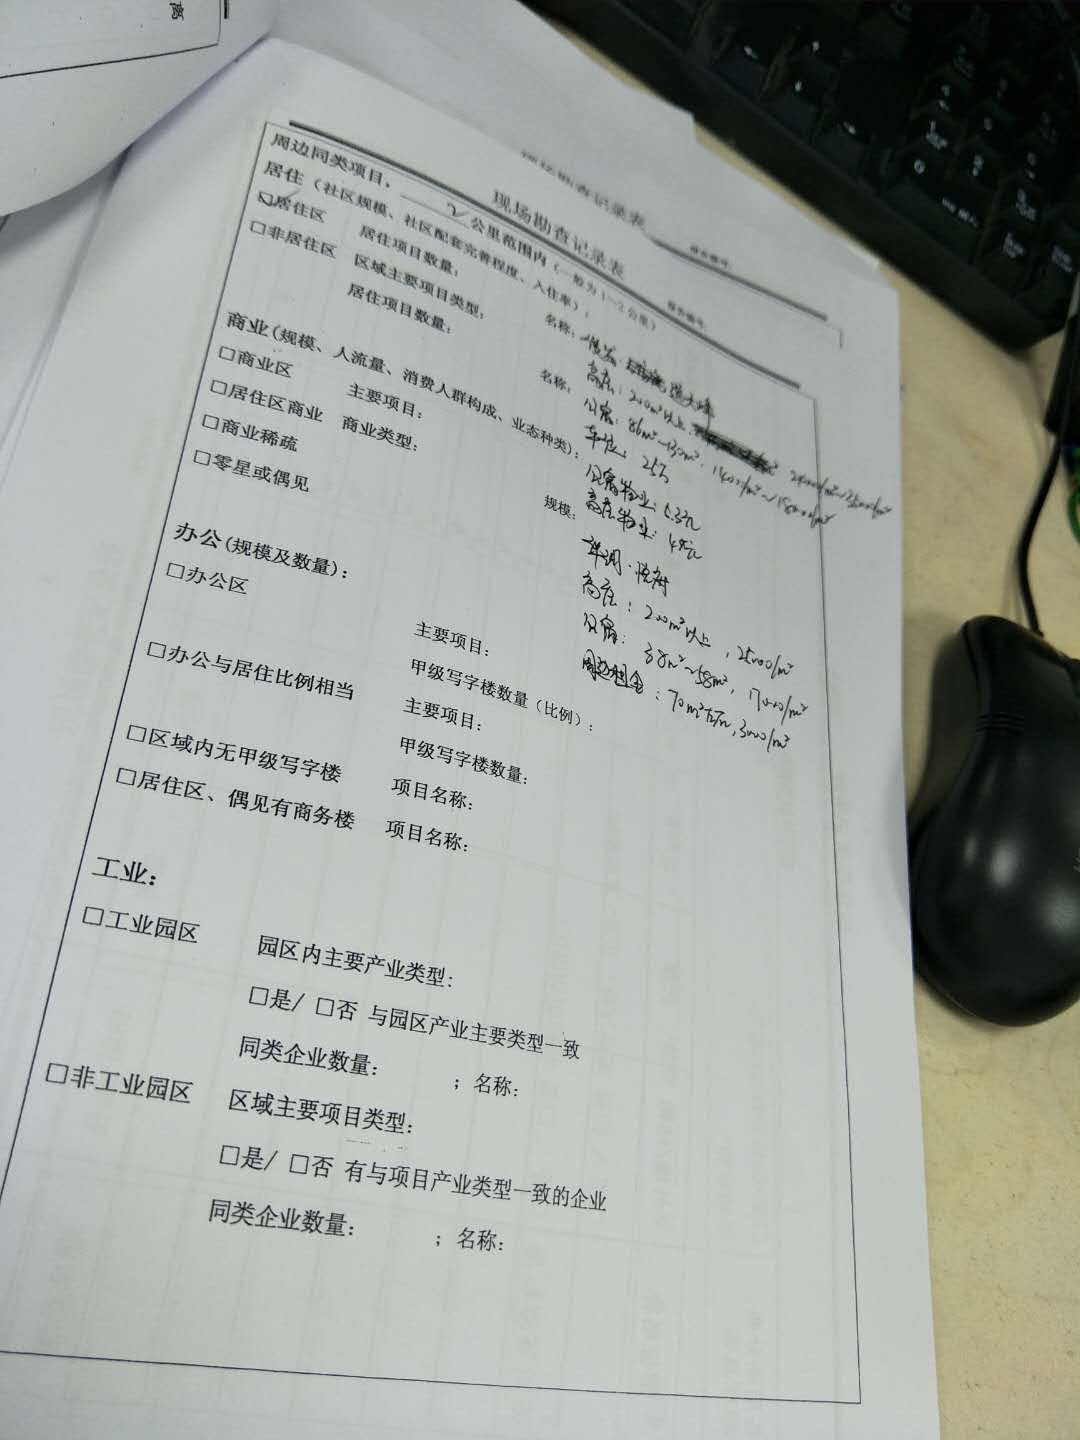 离
现场勘查记录表
现场勘查记录表
报告编号:
报告编号:
周边同类项目, 2 公里范围内(一般为1-2公里)
居住(社区规模、社区配套完善程度、入住率):
☑居住区 居住项目数量: 名称:
□非居住区 区域主要项目类型:
居住项目数量: 名称:
高层: 200m²以上, 24000/m²~25000/m²
公寓: 86m²-130m², 14000/m²~15000/m²
车位: 25万
公寓物业: 6.3元
高层物业: 4元
高层: 200m²以上, 25000/m²
公寓: 38m²~58m², 17000/m²
周边租金: 70m²左右, 3000/m²
商业(规模、人流量、消费人群构成、业态种类):
□商业区 主要项目: 规模:
□居住区商业 商业类型:
□商业稀疏
□零星或偶见
办公(规模及数量):
□办公区 主要项目:
甲级写字楼数量(比例):
□办公与居住比例相当 主要项目:
甲级写字楼数量:
□区域内无甲级写字楼 项目名称:
□居住区、偶见有商务楼 项目名称:
工业:
□工业园区 园区内主要产业类型:
□是/ □否 与园区产业主要类型一致
同类企业数量: ; 名称:
□非工业园区 区域主要项目类型:
□是/ □否 有与项目产业类型一致的企业
同类企业数量: ; 名称: